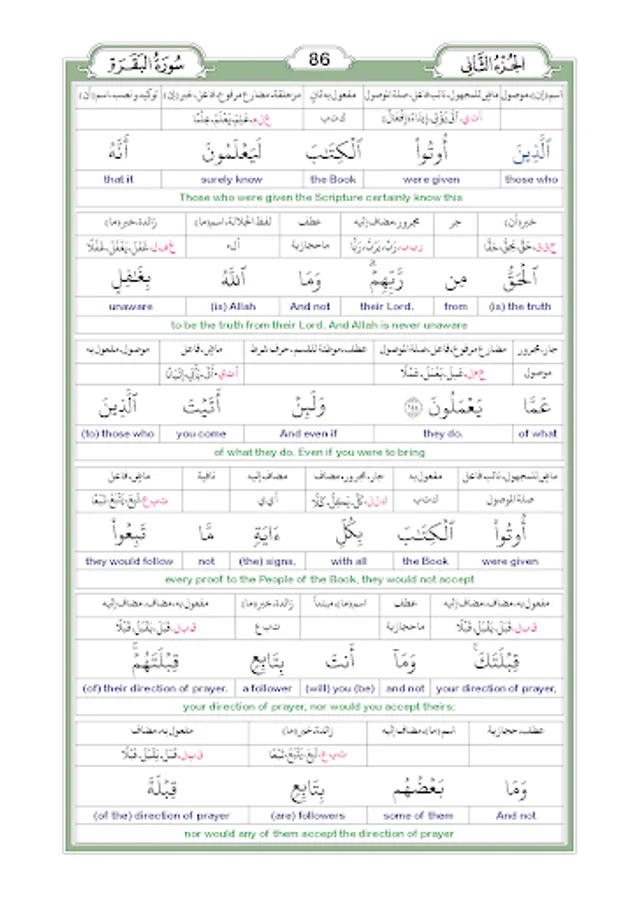 الجزء الثاني 86 سورة البقرة
اسم (إن)، موصول ماض للمجهول، نائب فاعل، صلة الموصول مفعول به ثان مزحلقة، مضارع مرفوع، فاعل، خبر (إن) توكيد و نصب، اسم (أن)
أ ت ي، آتَى، يُؤْتِي، إِيتَاءً (إِفْعَال) ك ت ب ع ل م، عَلِمَ، يَعْلَمُ، عِلْمًا
ٱلَّذِينَ أُوتُواْ ٱلْكِتَٰبَ لَيَعْلَمُونَ أَنَّهُ
those who were given the Book surely know that it
Those who were given the Scripture certainly know this
خبر (أن) جر مجرور، مضاف إليه عطف لفظ الجلالة، اسم (ما) زائدة، خبر (ما)
ح ق ق، حَقَّ، يَحِقُّ، حَقًّا ر ب ب، رَبَّ، يَرُبُّ، رَبًّا ما حجازية أ ل ه غ ف ل، غَفَلَ، يَغْفُلُ، غَفْلًا
ٱلْحَقُّ مِن رَّبِّهِمْۗ وَمَا ٱللَّهُ بِغَٰفِلٍ
(is) the truth from their Lord. And not (is) Allah unaware
to be the truth from their Lord. And Allah is never unaware
جار، مجرور مضارع مرفوع، فاعل، صلة الموصول عطف، موطئة للقسم، حرف شرط ماض، فاعل موصول، مفعول به
موصول ع م ل، عَمِلَ، يَعْمَلُ، عَمَلًا أ ت ي، أَتَى، يَأْتِي، إِتْيَانًا
عَمَّا يَعْمَلُونَ ١٤٤ وَلَئِنْ أَتَيْتَ ٱلَّذِينَ
of what they do. And even if you come (to) those who
of what they do. Even if you were to bring
ماض للمجهول، نائب فاعل مفعول به جار، مجرور، مضاف مضاف إليه نافية ماض، فاعل
صلة الموصول ك ت ب ك ل ل، كَلَّ، يَكِلُّ، كَلًّا أ ي ي ت ب ع، تَبِعَ، يَتْبَعُ، تَبَعًا
أُوتُواْ ٱلْكِتَٰبَ بِكُلِّ ءَايَةٍ مَّا تَبِعُواْ
were given the Book with all (the) signs, not they would follow
every proof to the People of the Book, they would not accept
مفعول به، مضاف، مضاف إليه عطف اسم (ما)، مبتدأ زائدة، خبر (ما) مفعول به، مضاف، مضاف إليه
ق ب ل، قَبِلَ، يَقْبَلُ، قَبْلًا ما حجازية ت ب ع ق ب ل، قَبِلَ، يَقْبَلُ، قَبْلًا
قِبْلَتَكَۚ وَمَآ أَنتَ بِتَابِعٍ قِبْلَتَهُمْۚ
your direction of prayer, and not (will) you (be) a follower (of) their direction of prayer.
your direction of prayer, nor would you accept theirs;
عطف، حجازية اسم (ما)، مضاف إليه زائدة، خبر (ما) مفعول به، مضاف
ت ب ع، تَبِعَ، يَتْبَعُ، تَبَعًا ق ب ل، قَبِلَ، يَقْبَلُ، قَبْلًا
وَمَا بَعْضُهُم بِتَابِعٍ قِبْلَةَ
And not some of them (are) followers (of the) direction of prayer
nor would any of them accept the direction of prayer